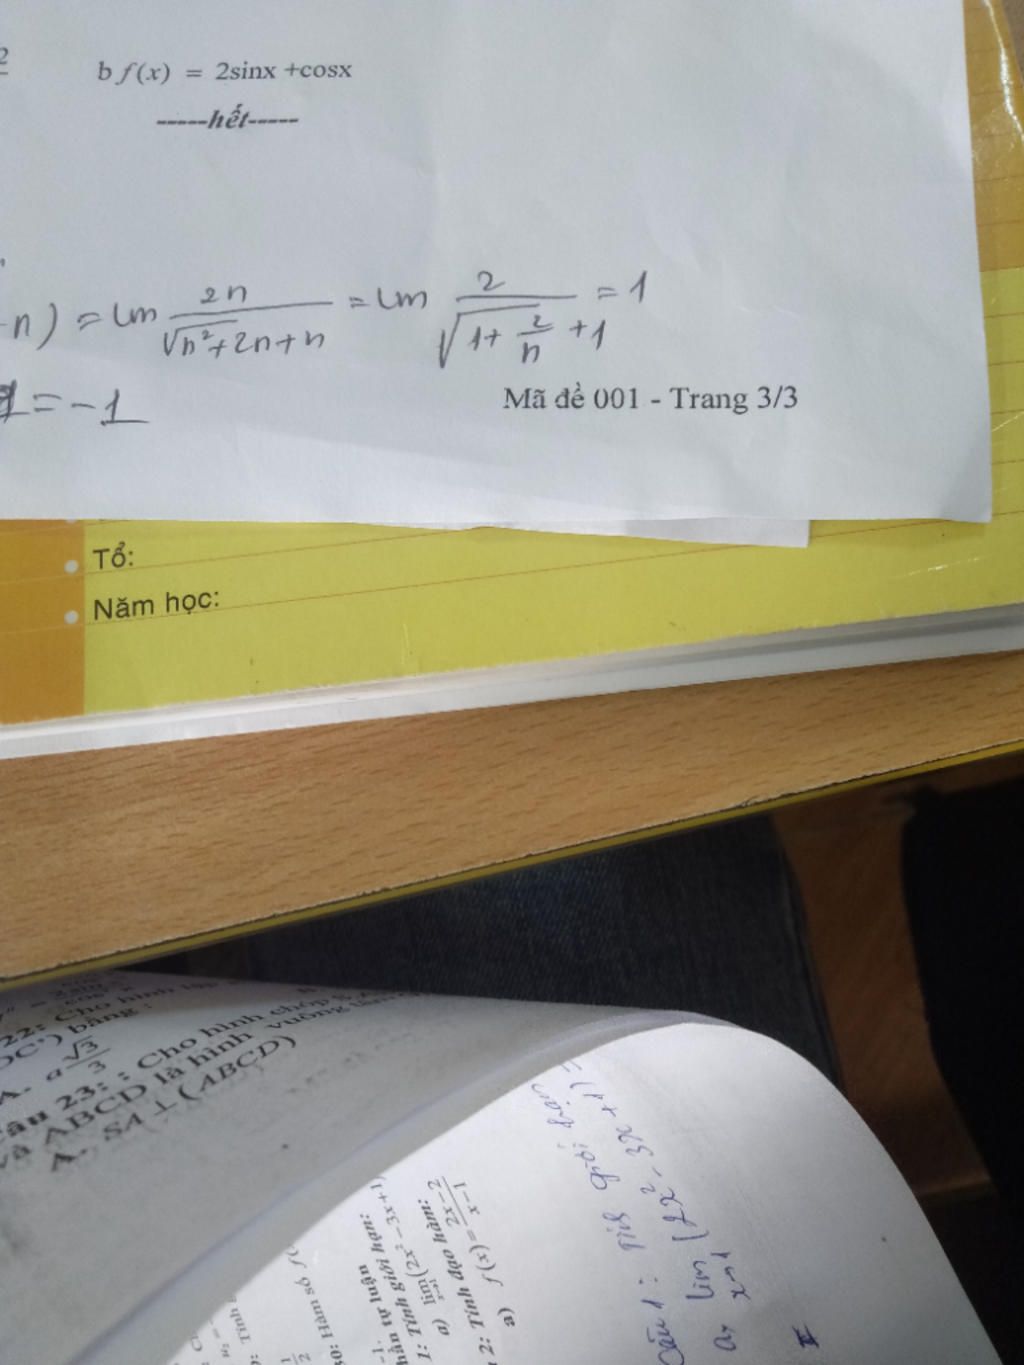 b f(x) = 2sinx +cosx
-----hết-----
n) = lim 2n / √n²+2n+n = lim 2 / √1+ 2/n +1 = 1
1 = -1
Mã đề 001 - Trang 3/3
Tổ:
Năm học:
22: Cho hình
DC') bằng :
A. a√3/3
Câu 23: : Cho hình chóp
và ABCD là hình vuông
A. SA ⊥ (ABCD)
Hàm số f(
Phần tự luận
1: Tính giới hạn:
a) lim(2x² -3x+1)
2: Tính đạo hàm:
a) f(x) = 2x-2 / x-1
Câu 1 : Tính giới hạn
a, lim (2x² - 3x +1) =
x→1